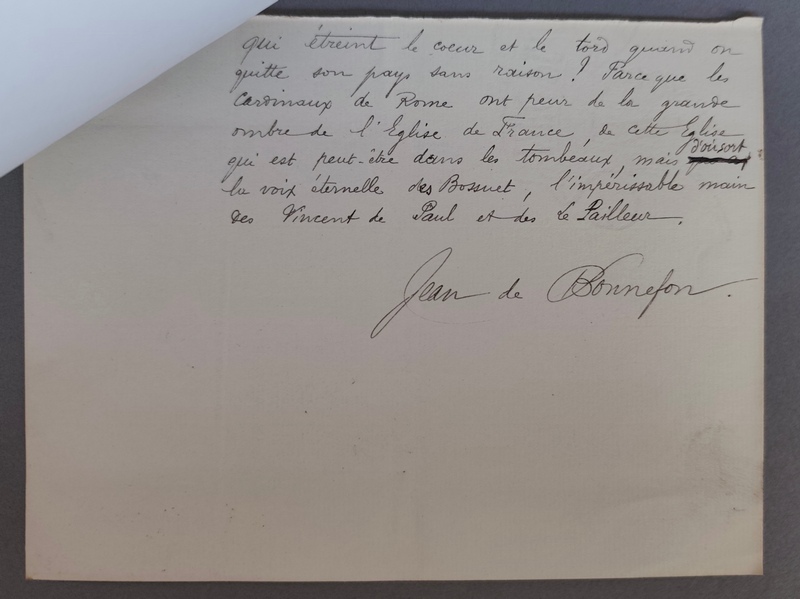 qui étreint le coeur et le tord quand on
quitte son pays sans raison ! Parce que les
Cardinaux de Rome ont peur de la grande
ombre de l'Eglise de France, de cette Eglise
qui est peut-être dans les tombeaux, mais d'où sort
la voix éternelle des Bossuet, l'impérissable main
des Vincent de Paul et des Le Pailleur.
Jean de Bonnefon.